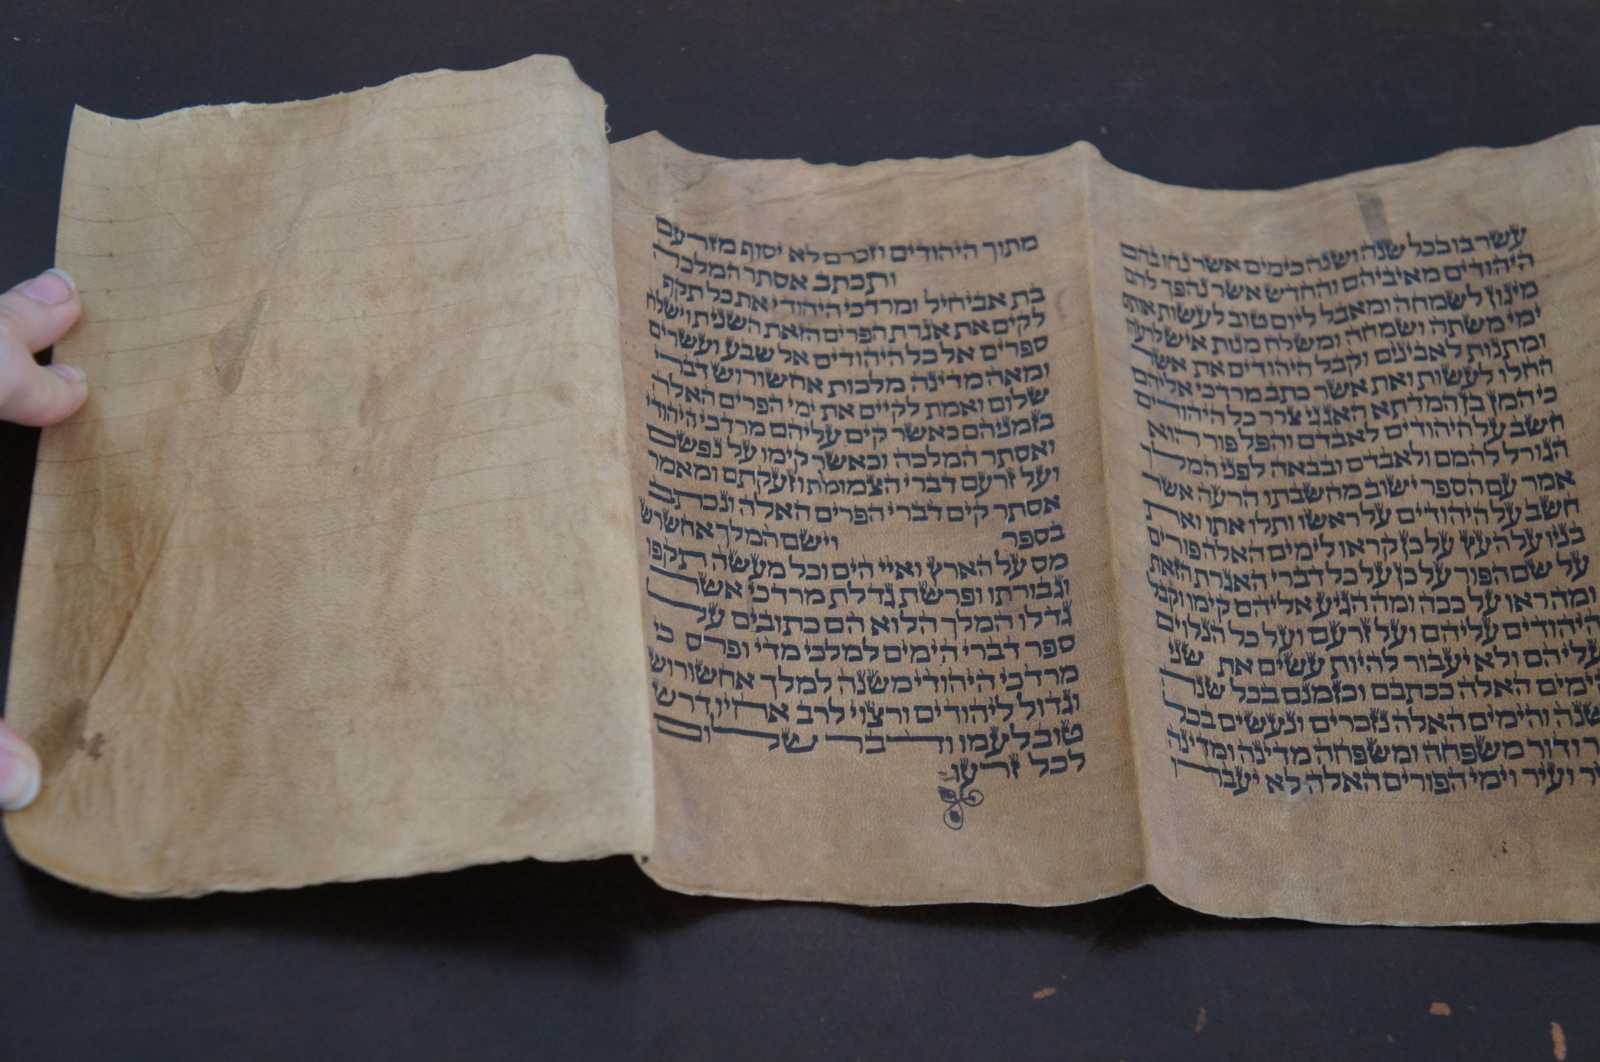 עשר בו בכל שנה ושנה כימים אשר נחו בהם
היהודים מאיביהם והחדש אשר נהפך להם
מיגון לשמחה ומאבל ליום טוב לעשות אותם
ימי משתה ושמחה ומשלח מנות איש לרעהו
ומתנות לאבינים וקבל היהודים את אשר
החלו לעשות ואת אשר כתב מרדכי אליהם
כי המן בן המדתא האגגי צרר כל היהודים
חשב על היהודים לאבדם והפל פור הוא
הגורל להמם ולאבדם ובבאה לפני המלך
אמר עם הספר ישוב מחשבתו הרעה אשר
חשב על היהודים על ראשו ותלו אתו ואת
בניו על העץ על כן קראו לימים האלה פורים
על שם הפור על כן על כל דברי האגרת הזאת
ומה ראו על ככה ומה הגיע אליהם קימו וקבל
היהודים עליהם ועל זרעם ועל כל הנלוים
עליהם ולא יעבור להיות עשים את שני
הימים האלה ככתבם וכזמנם בכל שנה
ושנה והימים האלה נזכרים ונעשים בכל
ודור משפחה ומשפחה מדינה ומדינה
ועיר וימי הפורים האלה לא יעברו
מתוך היהודים וזכרם לא יסוף מזרעם
ותכתב אסתר המלכה
בת אביחיל ומרדכי היהודי את כל תקף
לקים את אגרת הפרים הזאת השנית וישלח
ספרים אל כל היהודים אל שבע ועשרים
ומאה מדינה מלכות אחשורוש דברי
שלום ואמת לקיים את ימי הפרים האלה
בזמניהם כאשר קים עליהם מרדכי היהודי
ואסתר המלכה וכאשר קימו על נפשם
ועל זרעם דברי הצמות וזעקתם ומאמר
אסתר קים דברי הפרים האלה ונכתב
בספר וישם המלך אחשרש
מס על הארץ ואיי הים וכל מעשה תקפו
וגבורתו ופרשת גדלת מרדכי אשר
גדלו המלך הלוא הם כתובים על
ספר דברי הימים למלכי מדי ופרס כי
מרדכי היהודי משנה למלך אחשורוש
וגדול ליהודים ורצוי לרב אחיו דרש
טוב לעמו ודבר שלום
לכל זרעו